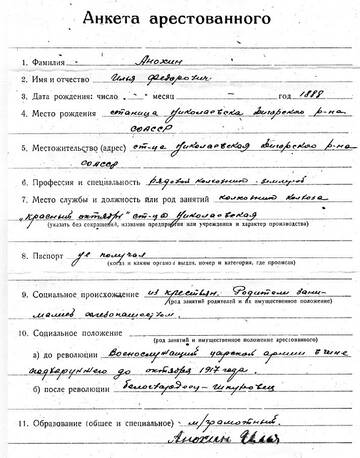 Анкета арестованного
1. Фамилия Анохин
2. Имя и отчество Илья Федорович
3. Дата рождения: число " - " месяц год 1888
4. Место рождения станица Николаевска Дигорского р-на
СОАССР
5. Местожительство (адрес) ст-ца Николаевская Дигорского р-на
СОАССР
6. Профессия и специальность рядовой колхозник
7. Место службы и должность или род занятий колхозник колхоза
"Красный октябрь" ст-ца Николаевская
(указать без сокращений, название предприятия или учреждения и характер производства)
8. Паспорт не получал
(когда и каким органом выдан, номер и категория, где прописан)
9. Социальное происхождение из крестьян. Родители зани-
(род занятий родителей и их имущественное положение)
мались хлебопашеством.
10. Социальное положение
(род занятий и имущественное положение арестованного)
а) до революции Военослужащий царской армии в чине
подхорунжего до октября 1917 года.
б) после революции белогвардеец-шкуровец
11. Образование (общее и специальное) м/грамотный.
Анохин Илья